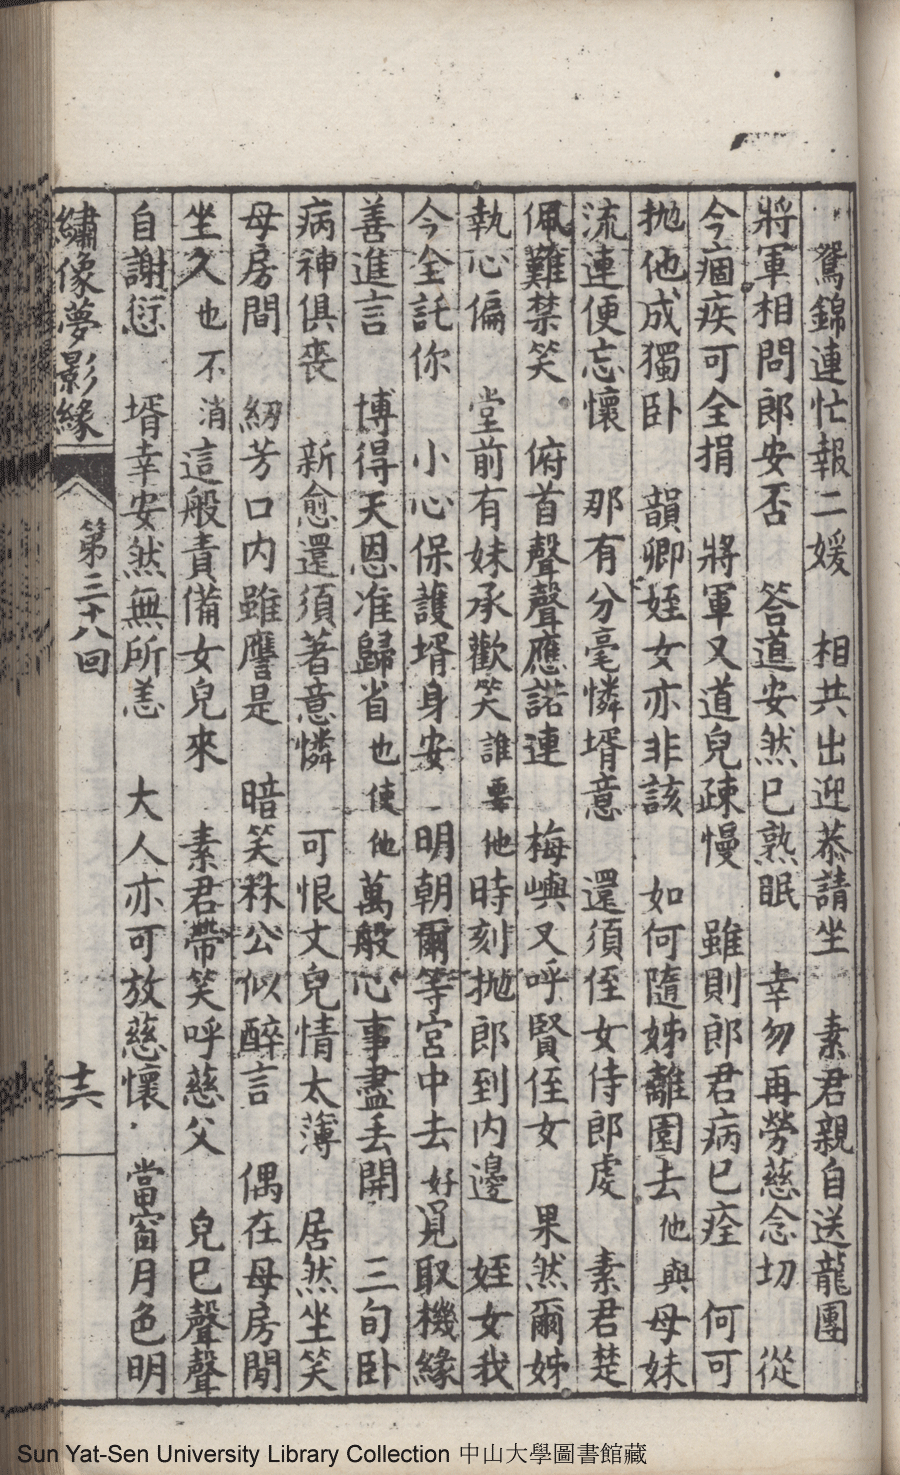 鴛錦連忙報二媛　相共出迎恭請坐　素君親自送龍團
將軍相問郎安否　答道安然已熟眠　幸勿再勞慈念切　從
今痼疾可全捐　將軍又道兒疎慢　雖則郎君病已痊　何可
抛他成獨卧　韻卿姪女亦非該　如何隨姊離園去他與母妹
流連便忘懷　那有分毫憐壻意　還須侄女侍郎處　素君楚
佩難禁笑　俯首聲聲應諾連　梅嶼又呼賢侄女　果然爾姊
執心偏　堂前有妹承歡笑誰要他時刻抛郎到内邊　姪女我
今全託你　小心保護壻身安　明朝爾等宮中去好覓取機緣
善進言　博得天恩准歸省也使他萬般心事盡丢開　三旬卧
病神俱喪　新愈還須著意憐　可恨丈兒情太薄　居然坐笑
母房間　紉芳口内雖譍是　暗笑秝公似醉言　偶在母房閒
坐久也不消這般責備女兒來　素君帶笑呼慈父　兒已聲聲
自謝愆　壻幸安然無所恙　大人亦可放慈懷　當窗月色明
繡像夢影緣　第三十八回　十六
Sun Yat-Sen University Library Collection 中山大學圖書館藏